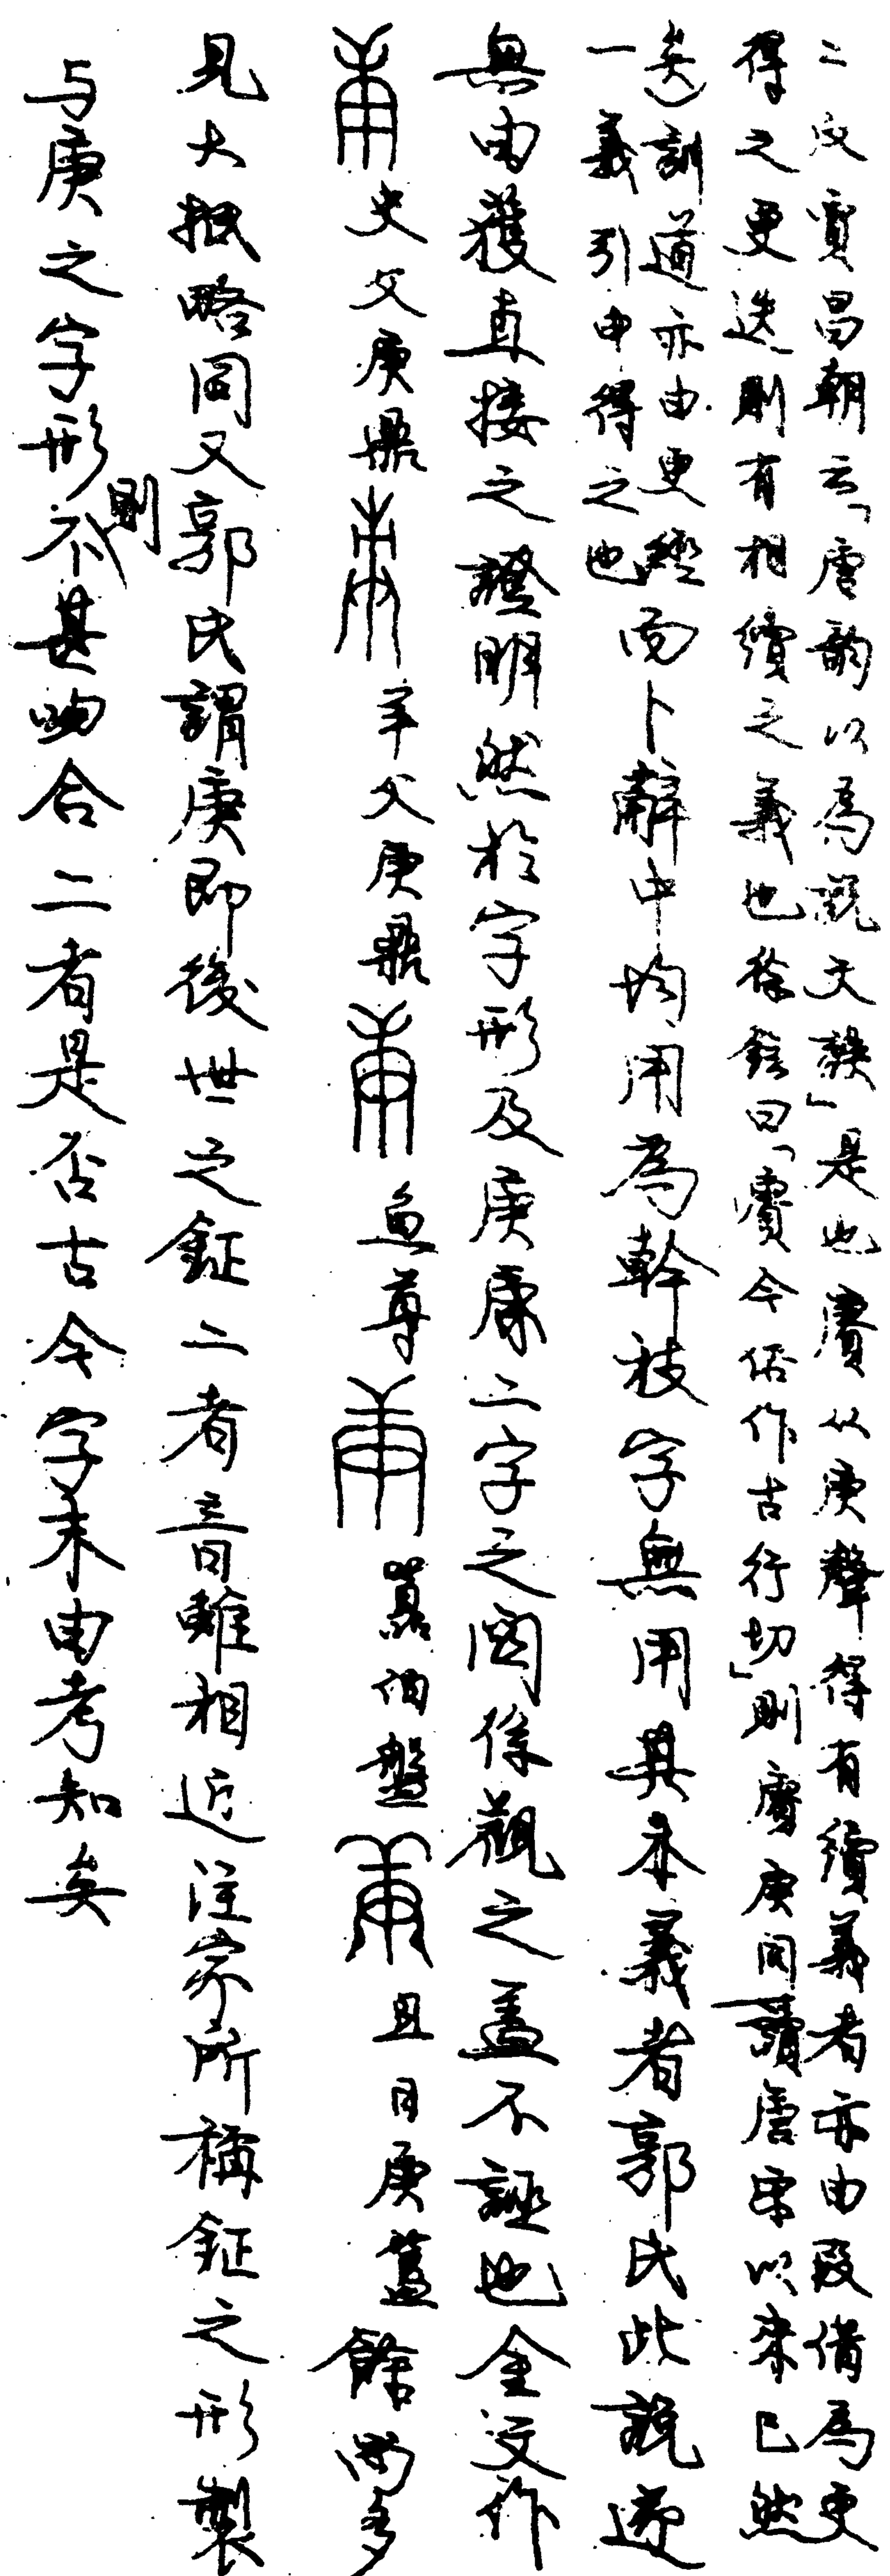 二反賈昌朝云「唐韻以爲説文誤」是也賡从庚聲得有續義者亦由叚借爲更
得之更迭則有相續之義也徐鉉曰「賡今俗作古行切」則賡庚同讀唐宋以來已然
矣)訓道亦由更經
一義引申得之也
而卜辭中均用爲幹枝字無用其本義者郭氏此説遂
無由獲直接之證明然於字形及庚康二字之関係觀之蓋不誣也金文作
史父庚鼎 羊父庚鼎 魚尊 伯盤 且日庚簋餘尚多
見大抵略同又郭氏謂庚即後世之鉦二者音雖相近注家所稱鉦之形製
与庚之字形則不甚吻合二者是否古今字末由考知矣